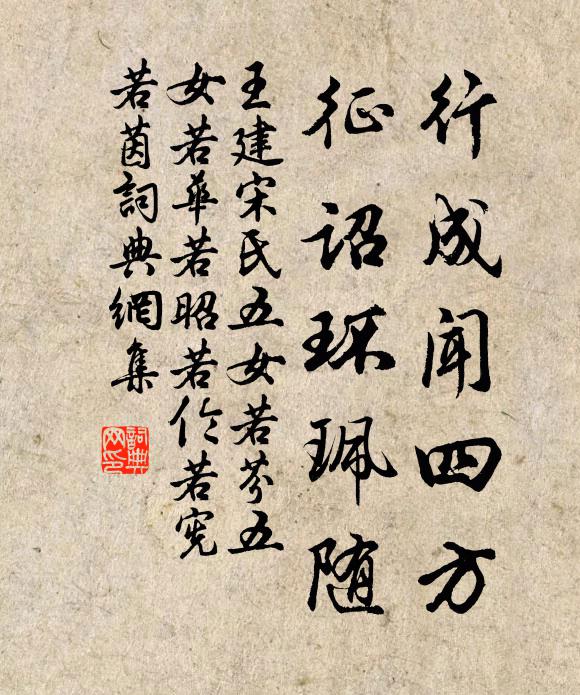 行成闻四方
征诏环珮随
王建宋氏五女若芬五
女若華若昭若伦若宪
若茵詞典網集
詞典
网印